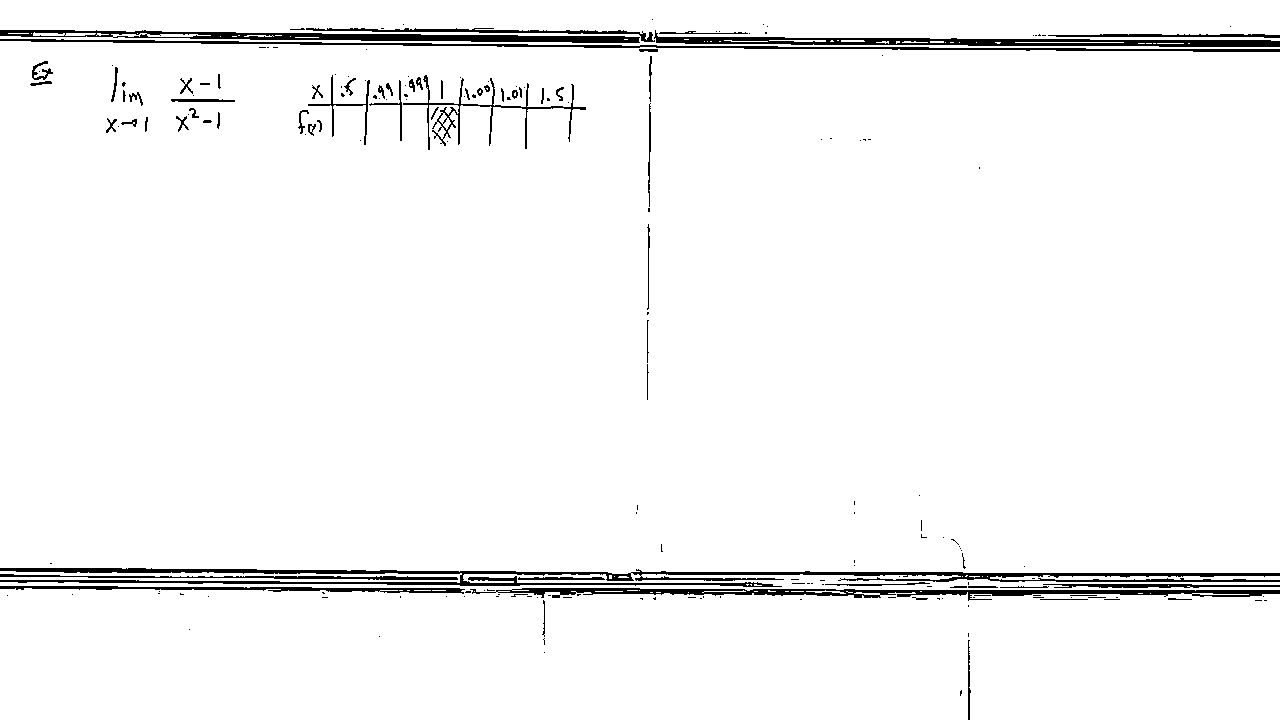 Ex
lim x→1 (x-1)/(x²-1)
x | .5 | .99 | .999 | 1 | 1.001 | 1.01 | 1.5 |
f(x)